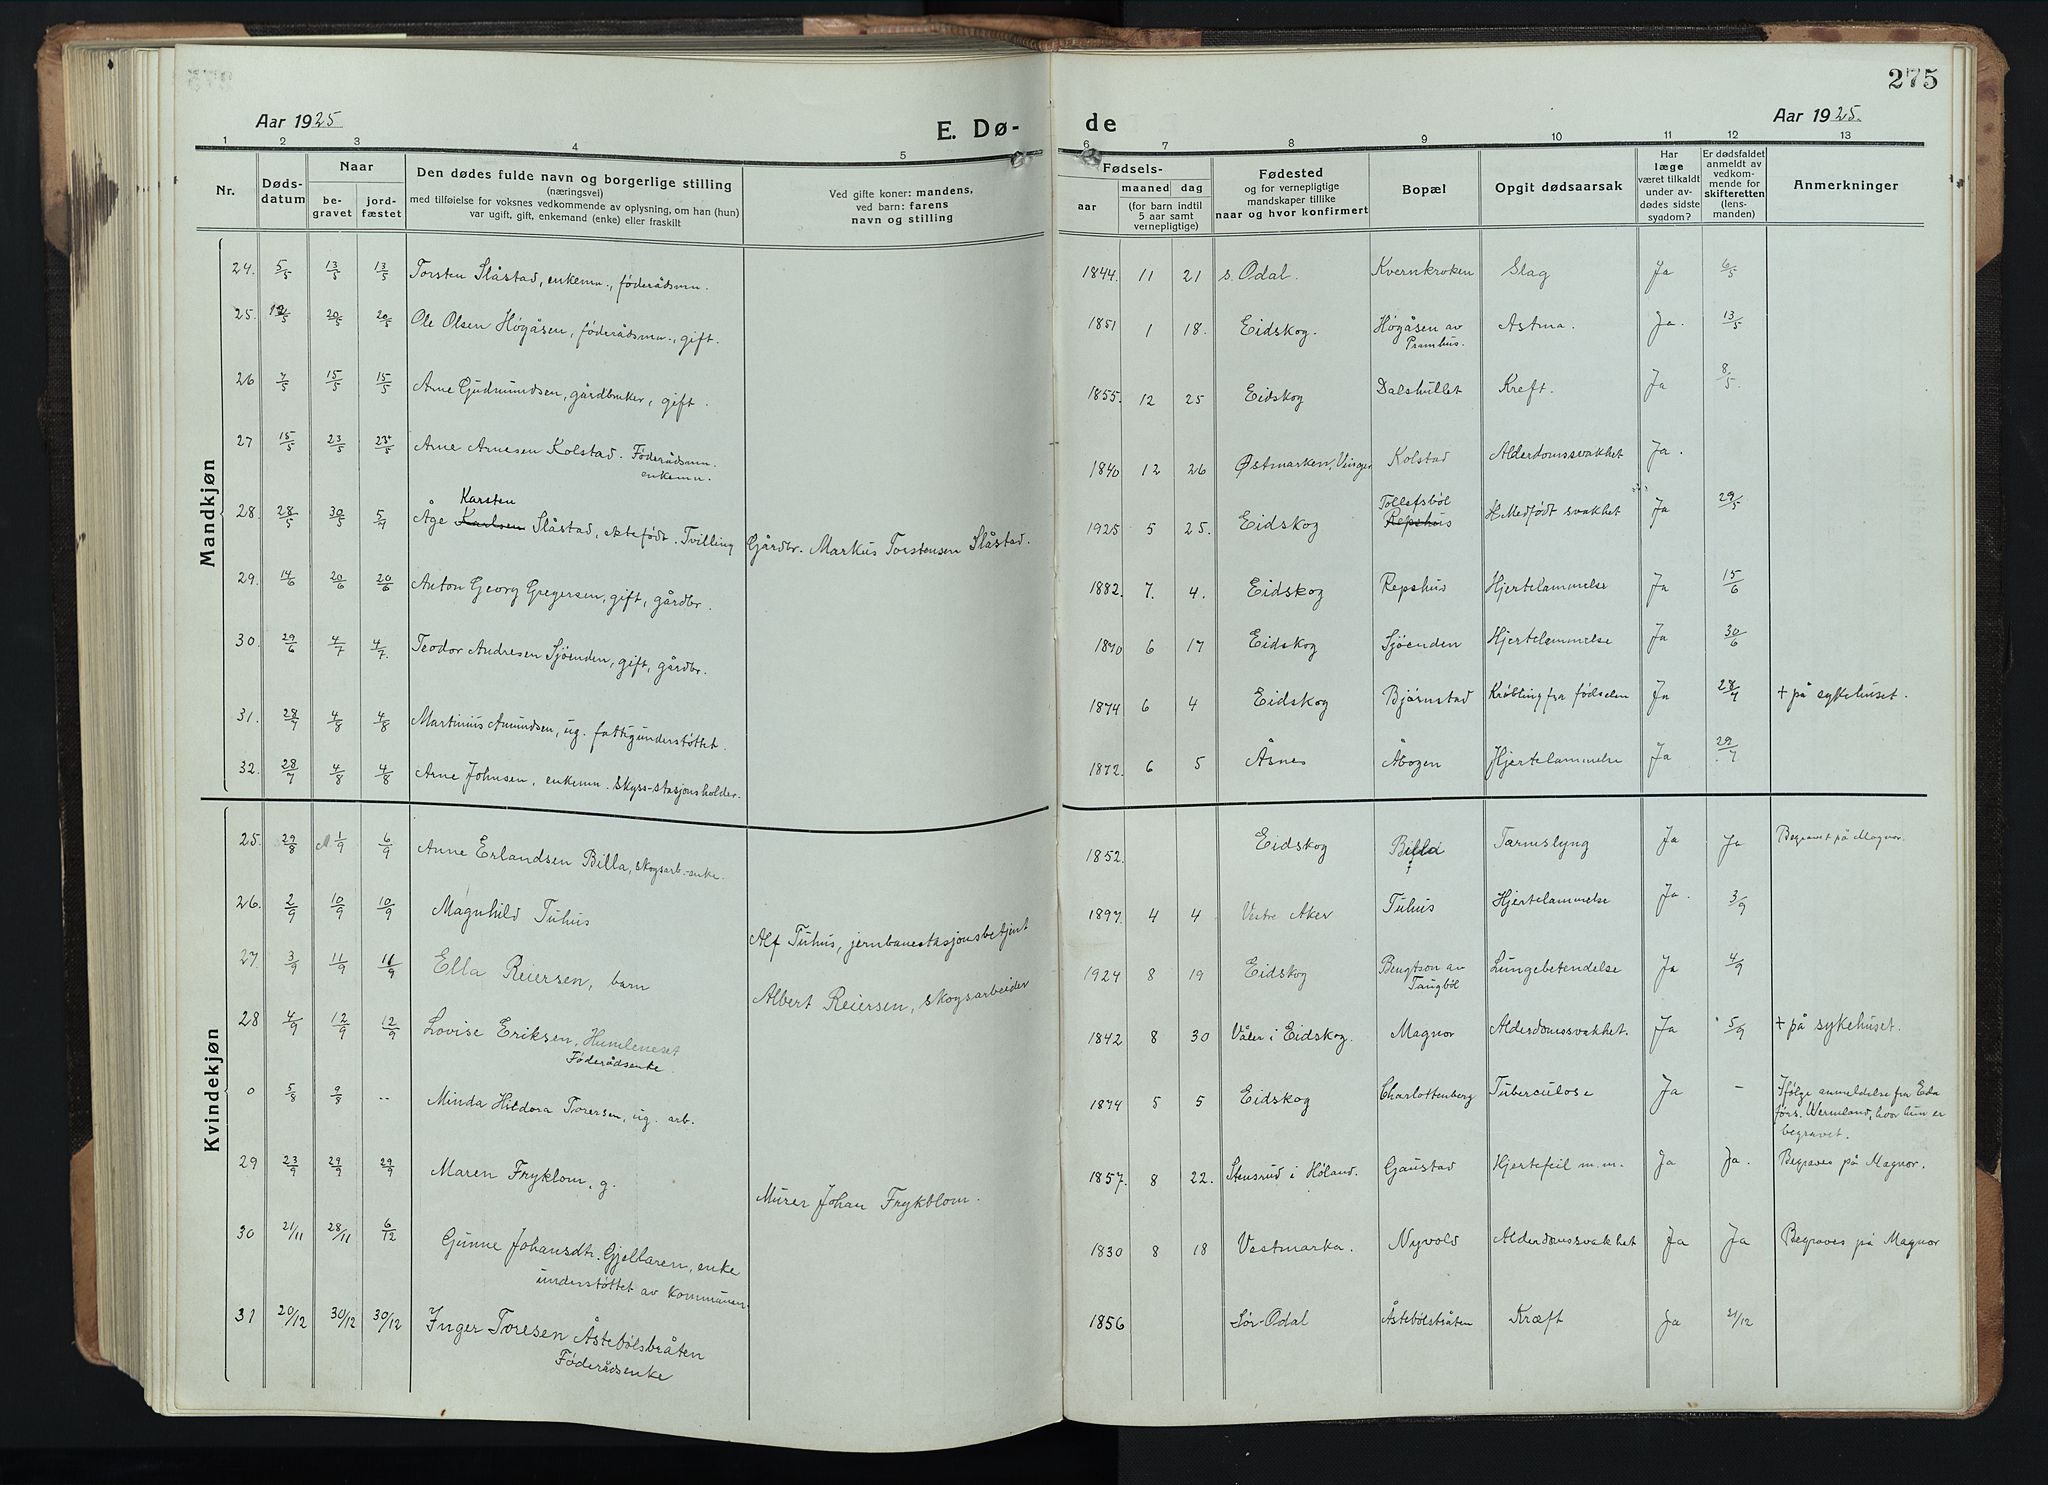 275
Aar 1925
E. Dø-
de
Aar 1925.
1 2 3 4 5 6 7 8 9 10 11 12 13
Nr.
Døds-
datum
Naar
be-
gravet
jord-
fæstet
Den dødes fulde navn og borgerlige stilling
(næringsvei)
med tilføielse for voksnes vedkommende av oplysning, om han (hun)
var ugift, gift, enkemand (enke) eller fraskilt
Ved gifte koner: mandens,
ved barn: farens
navn og stilling
Fødsels-
aar
maaned
dag
(for barn indtil
5 aar samt
vernepligtige)
Fødested
og for vernepligtige
mandskaper tillike
naar og hvor konfirmert
Bopæl
Opgit dødsaarsak
Har
læge
været tilkaldt
under av-
dødes sidste
sygdom?
Er dødsfaldet
anmeldt av
vedkom-
mende for
skifteretten
(lens-
manden)
Anmerkninger
Mandkjøn
24. 5/5 13/5 13/5 Torsten Slåstad, enkem., føderådsm. 1844. 11 21 s. Odal. Kvernkroken Slag Ja 6/5
25. 12/5 20/5 20/5 Ole Olsen Høgåsen, føderådsm., gift. 1851 1 18. Eidskog. Høgåsen av Astma. Ja. 13/5
Pramhus.
26 7/5 15/5 15/5 Arne Gudmundsen, gårdbruker, gift. 1855. 12 25 Eidskog Dalshullet Kreft. Ja 8/5.
27 15/5 23/5 23/5 Arne Arnesen Kolstad. Føderådsm. 1840 12 26 Østmarken, Vinger Kolstad Alderdomssvakhet Ja.
enkem.
Karsten Tollefsbøl
28. 28/5 30/5 5/9 Åge Karlsen Slåstad, ektefødt. Tvilling Gårdbr. Markus Torstensen Slåstad. 1925 5 25. Eidskog Repshus Medfødt svakhet Ja 29/5
29. 14/6 20/6 20/6 Anton Georg Gregersen, gift, gårdbr. 1882. 7. 4. Eidskog Repshus Hjertelammelse Ja 15/6
30. 29/6 4/7 4/7. Teodor Andresen Sjøenden, gift, gårdbr. 1870 6 17 Eidskog Sjøenden Hjertelammelse Ja 30/6
31. 28/7 4/8 4/8 Martinius Amundsen, ug. fattigunderstøttet. 1874 6 4 Eidskog Bjørnstad Krøbling fra fødselen Ja 28/7 + på sykehuset.
32. 28/7 4/8 4/8 Arne Johnsen, enkem. skyss-stasjonsholder. 1872. 6 5 Åsnes Åbogen Hjertelammelse Ja 29/7
Kvindekjøn
25. 29/8 1/9 6/9 Anne Erlandsen Billa, skogsarb.-enke. 1852. Eidskog Billa Tarmslyng Ja Ja Begravet på Magnor.
26. 2/9 10/9 10/9 Magnhild Tuhus Alf Tuhus, jernbanestasjonsbetjent 1897. 4 4 Vestre Aker Tuhus Hjertelammelse Ja. 3/9
27. 3/9 11/9 11/9 Ella Reiersen, barn Albert Reiersen, skogsarbeider 1924 8 19 Eidskog Bengtson av Lungebetendelse Ja 4/9
Taugbøl
28 4/9 12/9 12/9 Lovise Eriksen, Humleneset 1842 8 30 Våler i Eidskog. Magnor Alderdomssvakhet. Ja 5/9 + på sykehuset.
Føderådsenke.
0 5/8 9/8 -- Minda Hildora Torersen, ug. arb. 1874 5 5 Eidskog Charlottenberg Tuberculose Ja – Ifølge anmeldelse fra Eda
førs. Wermland, hvor hun er
begravet.
29 23/9 29/9 29/9 Maren Fryklom, g. Murer Johan Frykblom. 1857. 8 22. Stensrud i Høland. Gaustad Hjertefeil m.m. Ja Ja. Begraves på Magnor.
30 21/11 28/11 6/12 Gunne Johansdtr. Gjellaren, enke 1830 8 18 Vestmarka. Nyvold Alderdomssvakhet Ja Ja Begraves på Magnor
understøttet av kommunen.
31 20/12 30/12 30/12 Inger Toresen Åstebølsbråten 1856 Sør-Odal Åstebølsbråten Kræft Ja 21/12
Føderådsenke